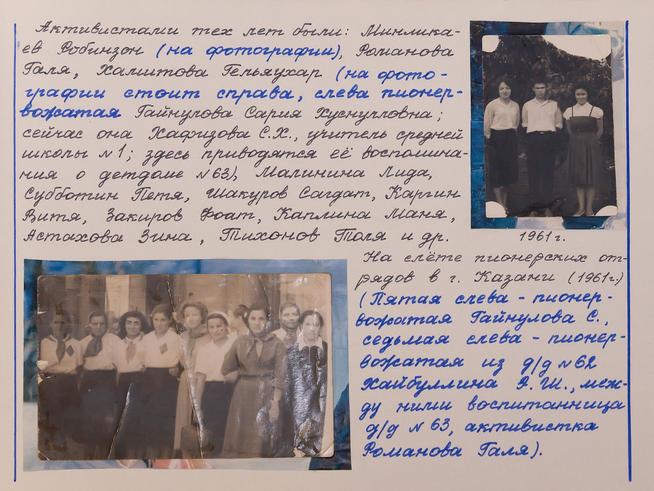 Активистами тех лет были: Минлика-
ев Робинзон (на фотографии), Романова
Галя, Халитова Гельяухар (на фото-
графии стоит справа, слева пионер-
вожатая Гайнулова Сария Хуснулловна;
сейчас она Хафизова С.Х., учитель средней
школы №1; здесь приводятся её воспомина-
ния о детдоме №63), Малинина Лида,
Субботин Петя, Шакуров Сагдат, Каргин
Витя, Закиров Фоат, Каплина Маня,
Астахова Зина, Тихонов Толя и др.
1961 г.
На слёте пионерских от-
рядов в г. Казани (1961г.)
(Пятая слева - пионер-
вожатая Гайнулова С.,
седьмая слева - пионер-
вожатая из д/д №62
Хайбуллина Я. Ш., меж-
ду ними воспитанница
д/д №63, активистка
Романова Галя).